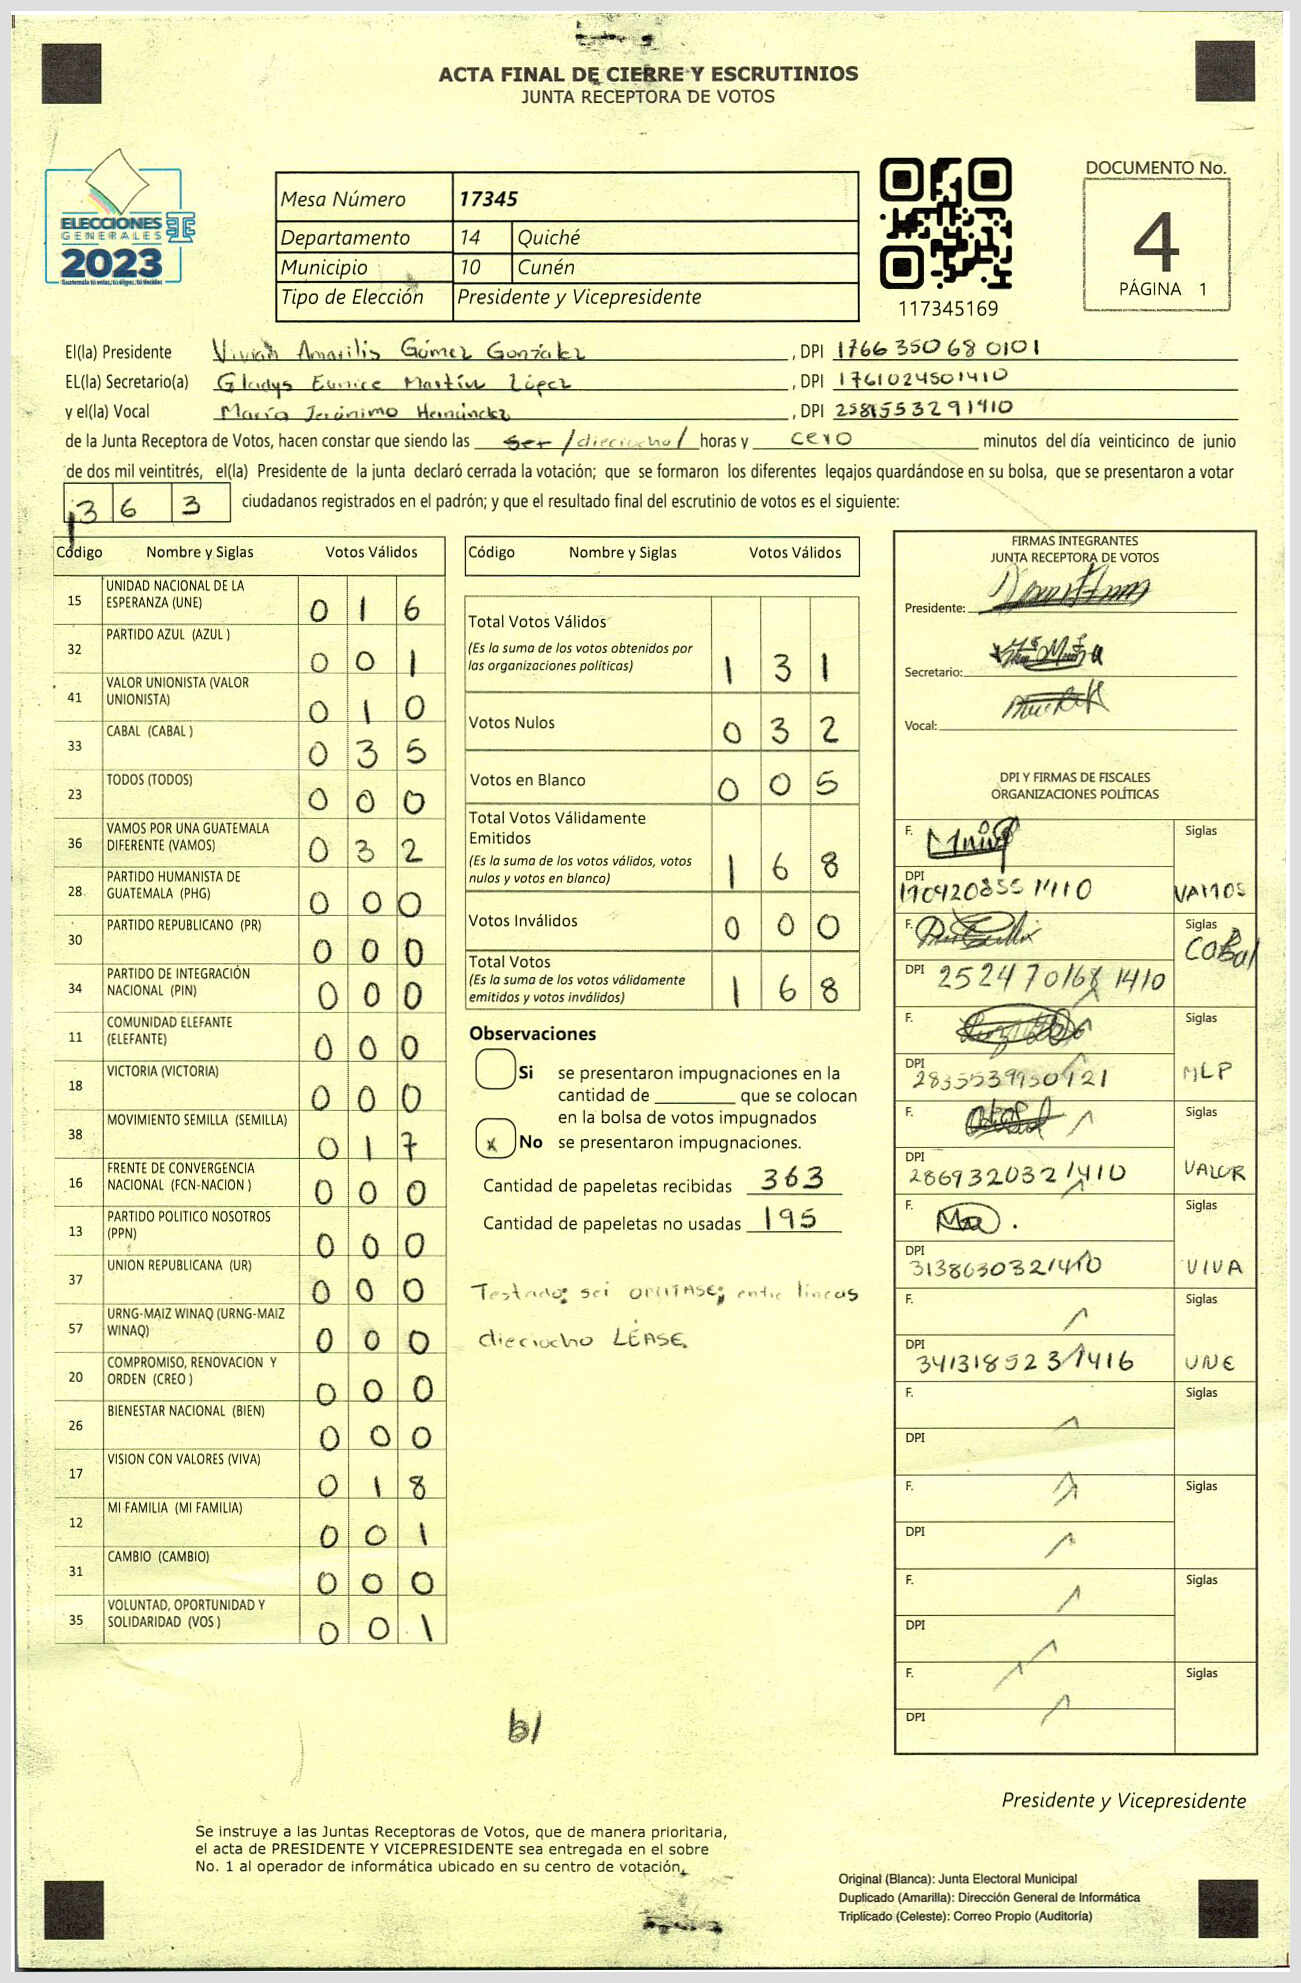 ACTA FINAL DE CIERRE Y ESCRUTINIOS
JUNTA RECEPTORA DE VOTOS
ELECCIONES
GENERALES
2023
Mesa Número 17345
Departamento 14 Quiché
Municipio 10 Cunén
Tipo de Elección Presidente y Vicepresidente
117345169
DOCUMENTO No.
4
PÁGINA 1
El(la) Presidente Vivian Amarilis Gómez González , DPI 1766 35068 0101
EL(la) Secretario(a) Gladys Eunice Martín López , DPI 1761024501410
y el(la) Vocal María Jerónimo Hernández , DPI 2581553291410
de la Junta Receptora de Votos, hacen constar que siendo las ser /dieciocho/ horas y cero minutos del día veinticinco de junio
de dos mil veintitrés, el(la) Presidente de la junta declaró cerrada la votación; que se formaron los diferentes legajos quardándose en su bolsa, que se presentaron a votar
363 ciudadanos registrados en el padrón; y que el resultado final del escrutinio de votos es el siguiente:
Código Nombre y Siglas Votos Válidos
15 UNIDAD NACIONAL DE LA ESPERANZA (UNE) 0 1 6
32 PARTIDO AZUL (AZUL ) 0 0 1
41 VALOR UNIONISTA (VALOR UNIONISTA) 0 1 0
33 CABAL (CABAL ) 0 3 5
23 TODOS (TODOS) 0 0 0
36 VAMOS POR UNA GUATEMALA DIFERENTE (VAMOS) 0 3 2
28 PARTIDO HUMANISTA DE GUATEMALA (PHG) 0 0 0
30 PARTIDO REPUBLICANO (PR) 0 0 0
34 PARTIDO DE INTEGRACIÓN NACIONAL (PIN) 0 0 0
11 COMUNIDAD ELEFANTE (ELEFANTE) 0 0 0
18 VICTORIA (VICTORIA) 0 0 0
38 MOVIMIENTO SEMILLA (SEMILLA) 0 1 7
16 FRENTE DE CONVERGENCIA NACIONAL (FCN-NACION ) 0 0 0
13 PARTIDO POLITICO NOSOTROS (PPN) 0 0 0
37 UNION REPUBLICANA (UR) 0 0 0
57 URNG-MAIZ WINAQ (URNG-MAIZ WINAQ) 0 0 0
20 COMPROMISO, RENOVACION Y ORDEN (CREO ) 0 0 0
26 BIENESTAR NACIONAL (BIEN) 0 0 0
17 VISION CON VALORES (VIVA) 0 1 8
12 MI FAMILIA (MI FAMILIA) 0 0 1
31 CAMBIO (CAMBIO) 0 0 0
35 VOLUNTAD, OPORTUNIDAD Y SOLIDARIDAD (VOS ) 0 0 1
Código Nombre y Siglas Votos Válidos
Total Votos Válidos
(Es la suma de los votos obtenidos por
las organizaciones políticas) 1 3 1
Votos Nulos 0 3 2
Votos en Blanco 0 0 5
Total Votos Válidamente
Emitidos
(Es la suma de los votos válidos, votos
nulos y votos en blanco) 1 6 8
Votos Inválidos 0 0 0
Total Votos
(Es la suma de los votos válidamente
emitidos y votos inválidos) 1 6 8
Observaciones
Si se presentaron impugnaciones en la
cantidad de ________ que se colocan
en la bolsa de votos impugnados
x No se presentaron impugnaciones.
Cantidad de papeletas recibidas 363
Cantidad de papeletas no usadas 195
Testado: sei OMITASE; entre líneas
dieciocho LÉASE.
FIRMAS INTEGRANTES
JUNTA RECEPTORA DE VOTOS
Presidente:
Secretario:
Vocal:
DPI Y FIRMAS DE FISCALES
ORGANIZACIONES POLÍTICAS
F. Siglas
DPI VAMOS
F. Siglas
DPI 252470168 1410 CABAL
F. Siglas
DPI MLP
F. Siglas
DPI 286932032 1410 VALOR
F. Siglas
DPI 313863032 1410 VIVA
F. Siglas
DPI 341318523 1416 UNE
F. Siglas
DPI
F. Siglas
DPI
F. Siglas
DPI
F. Siglas
DPI
Presidente y Vicepresidente
Se instruye a las Juntas Receptoras de Votos, que de manera prioritaria,
el acta de PRESIDENTE Y VICEPRESIDENTE sea entregada en el sobre
No. 1 al operador de informática ubicado en su centro de votación.
Original (Blanca): Junta Electoral Municipal
Duplicado (Amarilla): Dirección General de Informática
Triplicado (Celeste): Correo Propio (Auditoría)